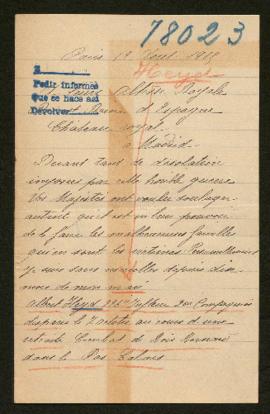 78023
Paris 19 Août 1915
Heyd
Pedir informes
Que se hace así
Devolver
Altesse Royale
Reine d'Espagne
Château royal
à Madrid
Devant tant de désolation
imposée par cette horrible guerre
Vos Majestés ont voulu soulager
autant qu'il est en leur pouvoir
de le faire les malheureuses familles
qui en sont les victimes
suis sans nouvelles depuis dix
mois de mon mari
Albert Heyd Infanterie 2me Compagnie
disparu le 7 octobre au cours d'une
retraite Combat de Bois
dans le Pas Calais